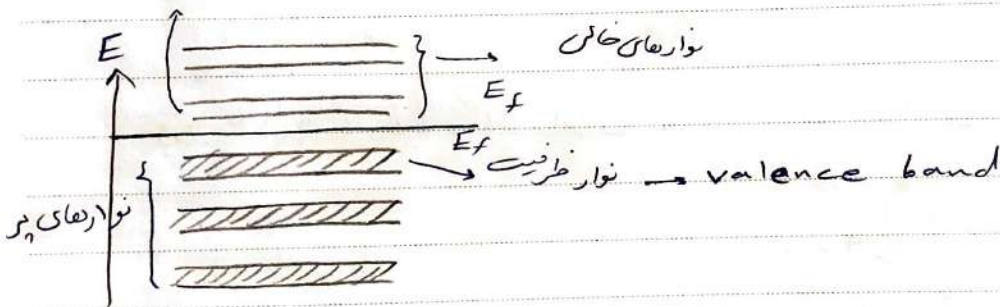 E
نوارهای خالی
E_f
E_f
نوار ظرفیت → valence band
نوارهای پر